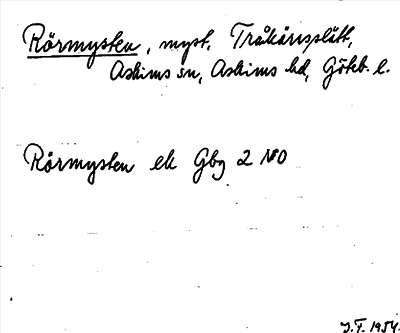 Rörmysten, myst. Tråkärrsplätt,
Askims sn, Askims hd, Göteb. l.
Rörmysten ek Gbg 2 NO
J.F. 1954.